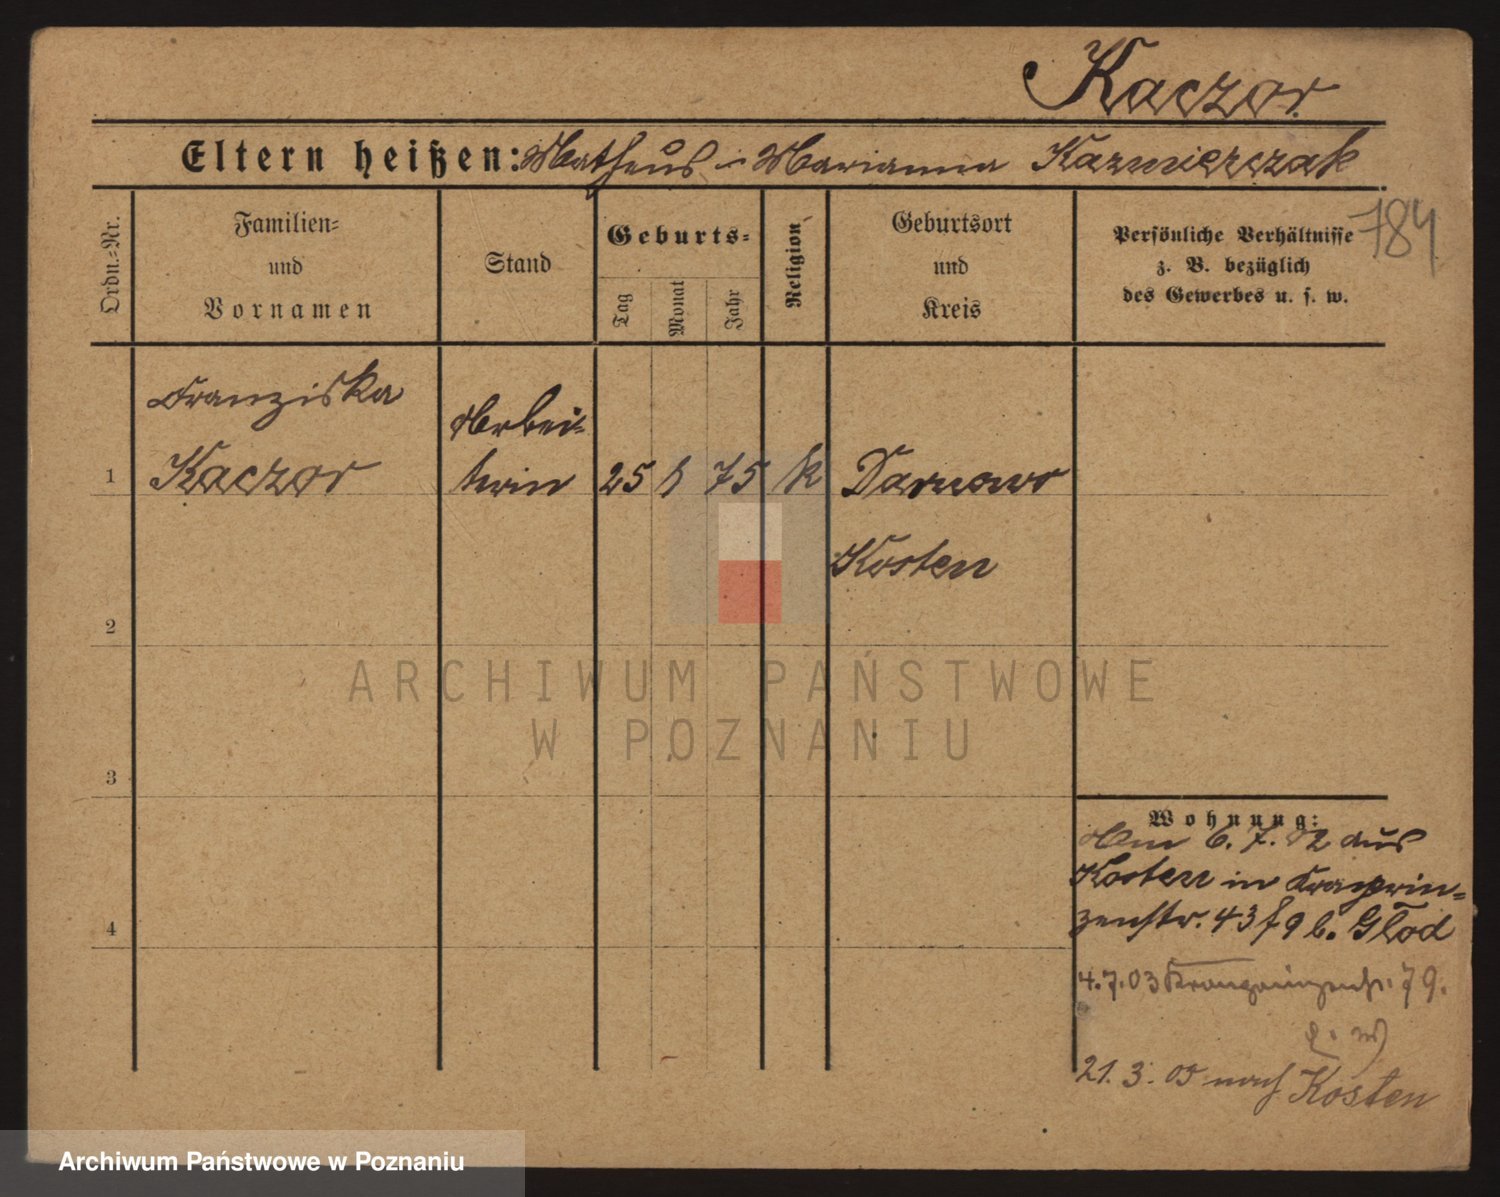 Kaczor.
Eltern heißen: Matheus - Marianna Kazmierczak
784
Ordn.-Nr.
Familien-
und
Vornamen
Stand
Geburts-
Tag
Monat
Jahr
Religion
Geburtsort
und
Kreis
Persönliche Verhältnisse
z. B. bezüglich
des Gewerbes u. s. w.
Franziska
Kaczor
Arbei-
terin
1
25
75
k
Darnowo
Kosten
2
ARCHIWUM PAŃSTWOWE
W POZNANIU
3
Wohnung:
Am 6. 7. 02 aus
Kosten in Kronprin-
zenstr. 43 f 9 b. Glod
4
4. 7. 03 Kronprinzenstr. 79.
21. 3. 05 nach Kosten
Archiwum Państwowe w Poznaniu